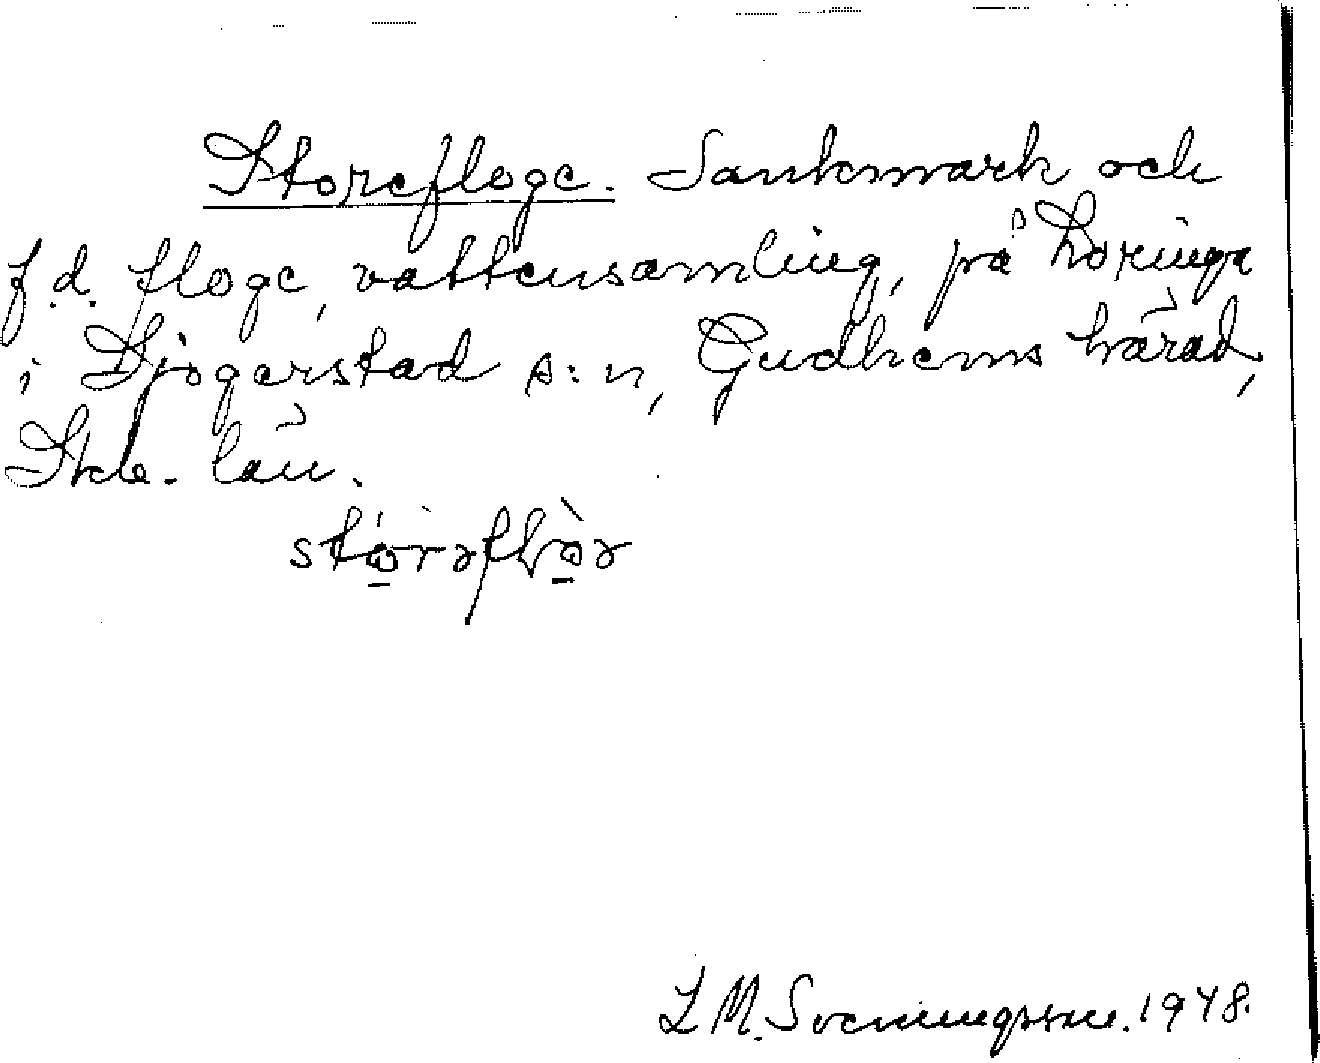 Storefloge. Sankmark och
f.d. floge, vattensamling, på Loringa
i Bjogarstad s:n, Gudhems härad,
Skb. län.
L M. Sveningsson. 1948.